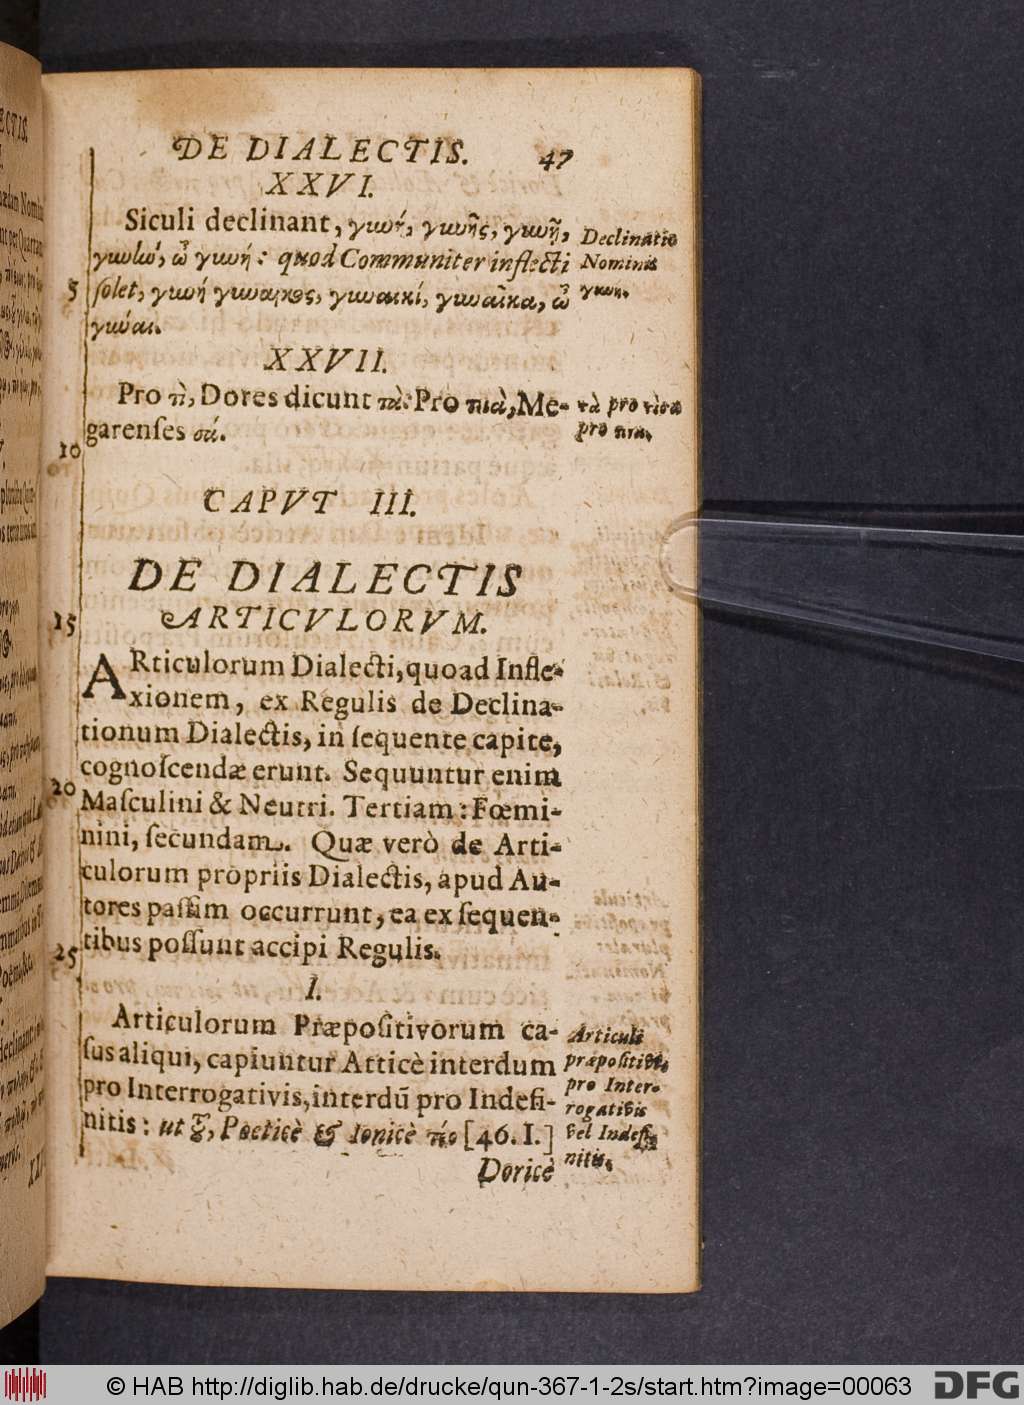 DE DIALECTIS. 47
XXVI.
Siculi declinant, γυνή, γυνῆς, γυνῇ,
γυνήν, ὦ γυνή: quod Communiter inflecti
solet, γυνή γυναικὸς, γυναικί, γυναῖκα, ὦ
γύναι.
Declinatio
Nominis
γυνή.
5
XXVII.
Pro τὶ, Dores dicunt τὰ: Pro τινὰ, Me-
garenses σά.
τὰ pro τὶ σα
pro τινα.
10
CAPVT III.
DE DIALECTIS
ARTICVLORVM.
15
ARticulorum Dialecti, quoad Infle-
xionem, ex Regulis de Declina-
tionum Dialectis, in ſequente capite,
cognoſcendæ erunt. Sequuntur enim
20
Maſculini & Neutri. Tertiam: Fœmi-
nini, ſecundam. Quæ verò de Arti-
culorum propriis Dialectis, apud Au-
tores paſſim occurrunt, ea ex ſequen-
tibus poſſunt accipi Regulis.
25
I.
Articulorum Præpoſitivorum ca-
ſus aliqui, capiuntur Atticè interdum
pro Interrogativis, interdū pro Indefi-
nitis: ut τοῦ, Poeticè & Ionicè τέο [46. I.]
Articuli
præpoſitivi,
pro Inter-
rogativis
vel Indefi-
nitis.
Doricè
© HAB http://diglib.hab.de/drucke/qun-367-1-2s/start.htm?image=00063
DFG